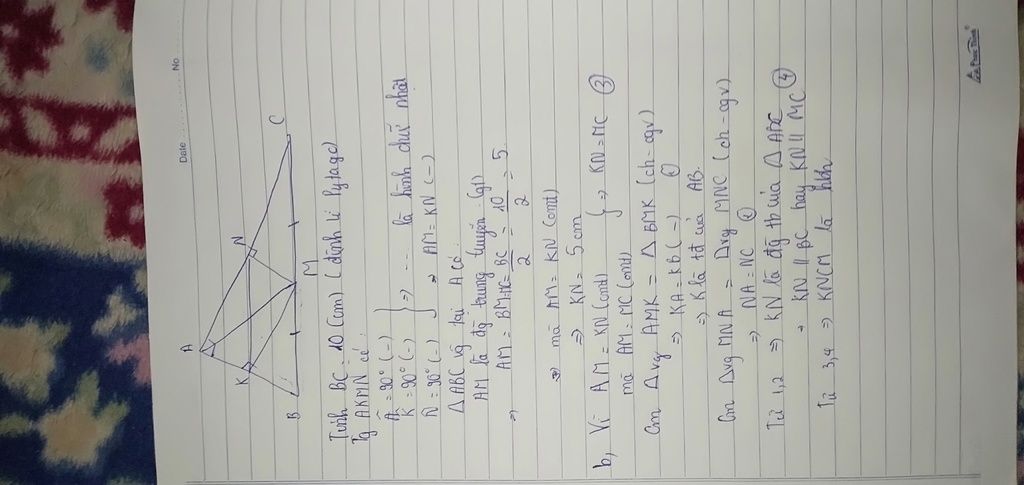 Date
No
A
K
N
B
M
C
Tính BC = 10 (cm) (định lí Pytago)
Tg AKMN có:
Â = 90° (-)
K̂ = 90° (-)
N̂ = 90° (-)
} => ... là hình chữ nhật
=> AM = KN (-)
ΔABC vg tại A có:
AM là đg trung tuyến (gt)
=> AM = BM=MC = BC/2 = 10/2 = 5.
=> mà AM = KN (cmt)
=> KN = 5 cm
b, Vì AM = KN (cmt)
mà AM = MC (cmt)
} => KN = MC (3)
Cm Δvg AMK = Δ BMK (ch-cgv)
=> KA = KB (-) (1)
=> K là tđ của AB.
Cm Δvg MNA = Δvg MNC (ch-cgv)
=> NA = NC (2)
Từ 1,2 => KN là đg tb của Δ ABC
=> KN // BC hay KN // MC (4)
Từ 3,4 => KNCM là hbh